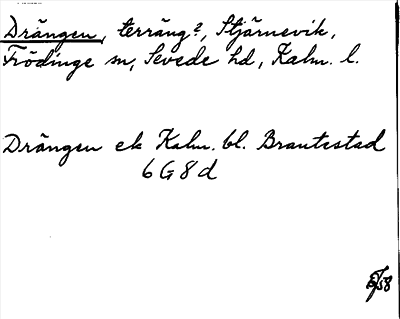 Drängen, terräng?, Stjärnevik,
Frödinge sn, Sevede hd, Kalm. l.
Drängen ek Kalm. bl. Brantestad
6G8d